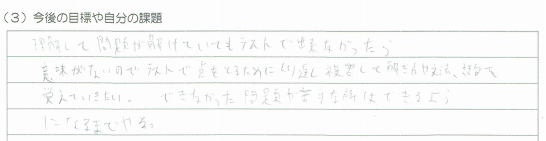 (3) 今後の目標や自分の課題
理解して問題が解けていてもテストで出来なかったら
意味がないのでテストで点をとるためにくり返し復習して解き方や文法、を
覚えていきたい。 できなかった問題や苦手な所はできるよう
になるまでやる。